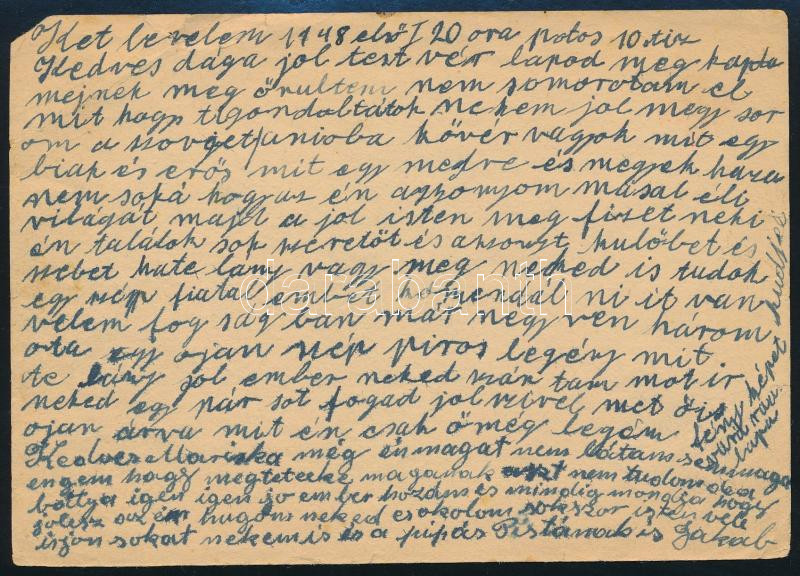 Ket levelem 1948 első I 20 ora potos 10.tiz
Kedves dága jol test vér lapod meg kapta
mejnek meg örultem nem somorotam el
mit hogy ti gondoltátok nekem jol megy sor
om a szovget/unioba kövér vagyok mit egy
biak és erős mit egy medve es megyek haza
nem soká hogy az én aszonyom masal éli
világat majd a jol isten meg fizet neki
én találok sok szeretöt és aszonyt kulőbet és
szebet hate lany vagy meg neked is tudok
egy szép fiatal embert komendál ni it van
velem fog ság ban már négy ven három
ota egy ojan szép piros legény mit
te lány jol ember neked szán tam mot ir
neked egy pár sot fogad jol szivel met őis
ojan árva mit én csak ő még legém
Kedves Mariska még én magat nem látam sem maga
engem hagy megtetecke maganak azt nem tudom de a
bottya igen igen jo ember hozám és mindig mondja hogy
jolesz az én hugom neked csokolom sokszor isten vele
irjon sokat nekem is és a pipás Pistának is Jakab
fény képet kudljet
darabanth